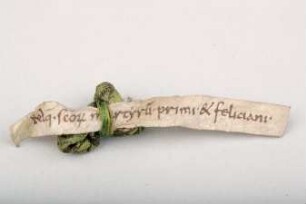 relq̣ · scoꝝ m rtyrū · primi · & feliciani ·